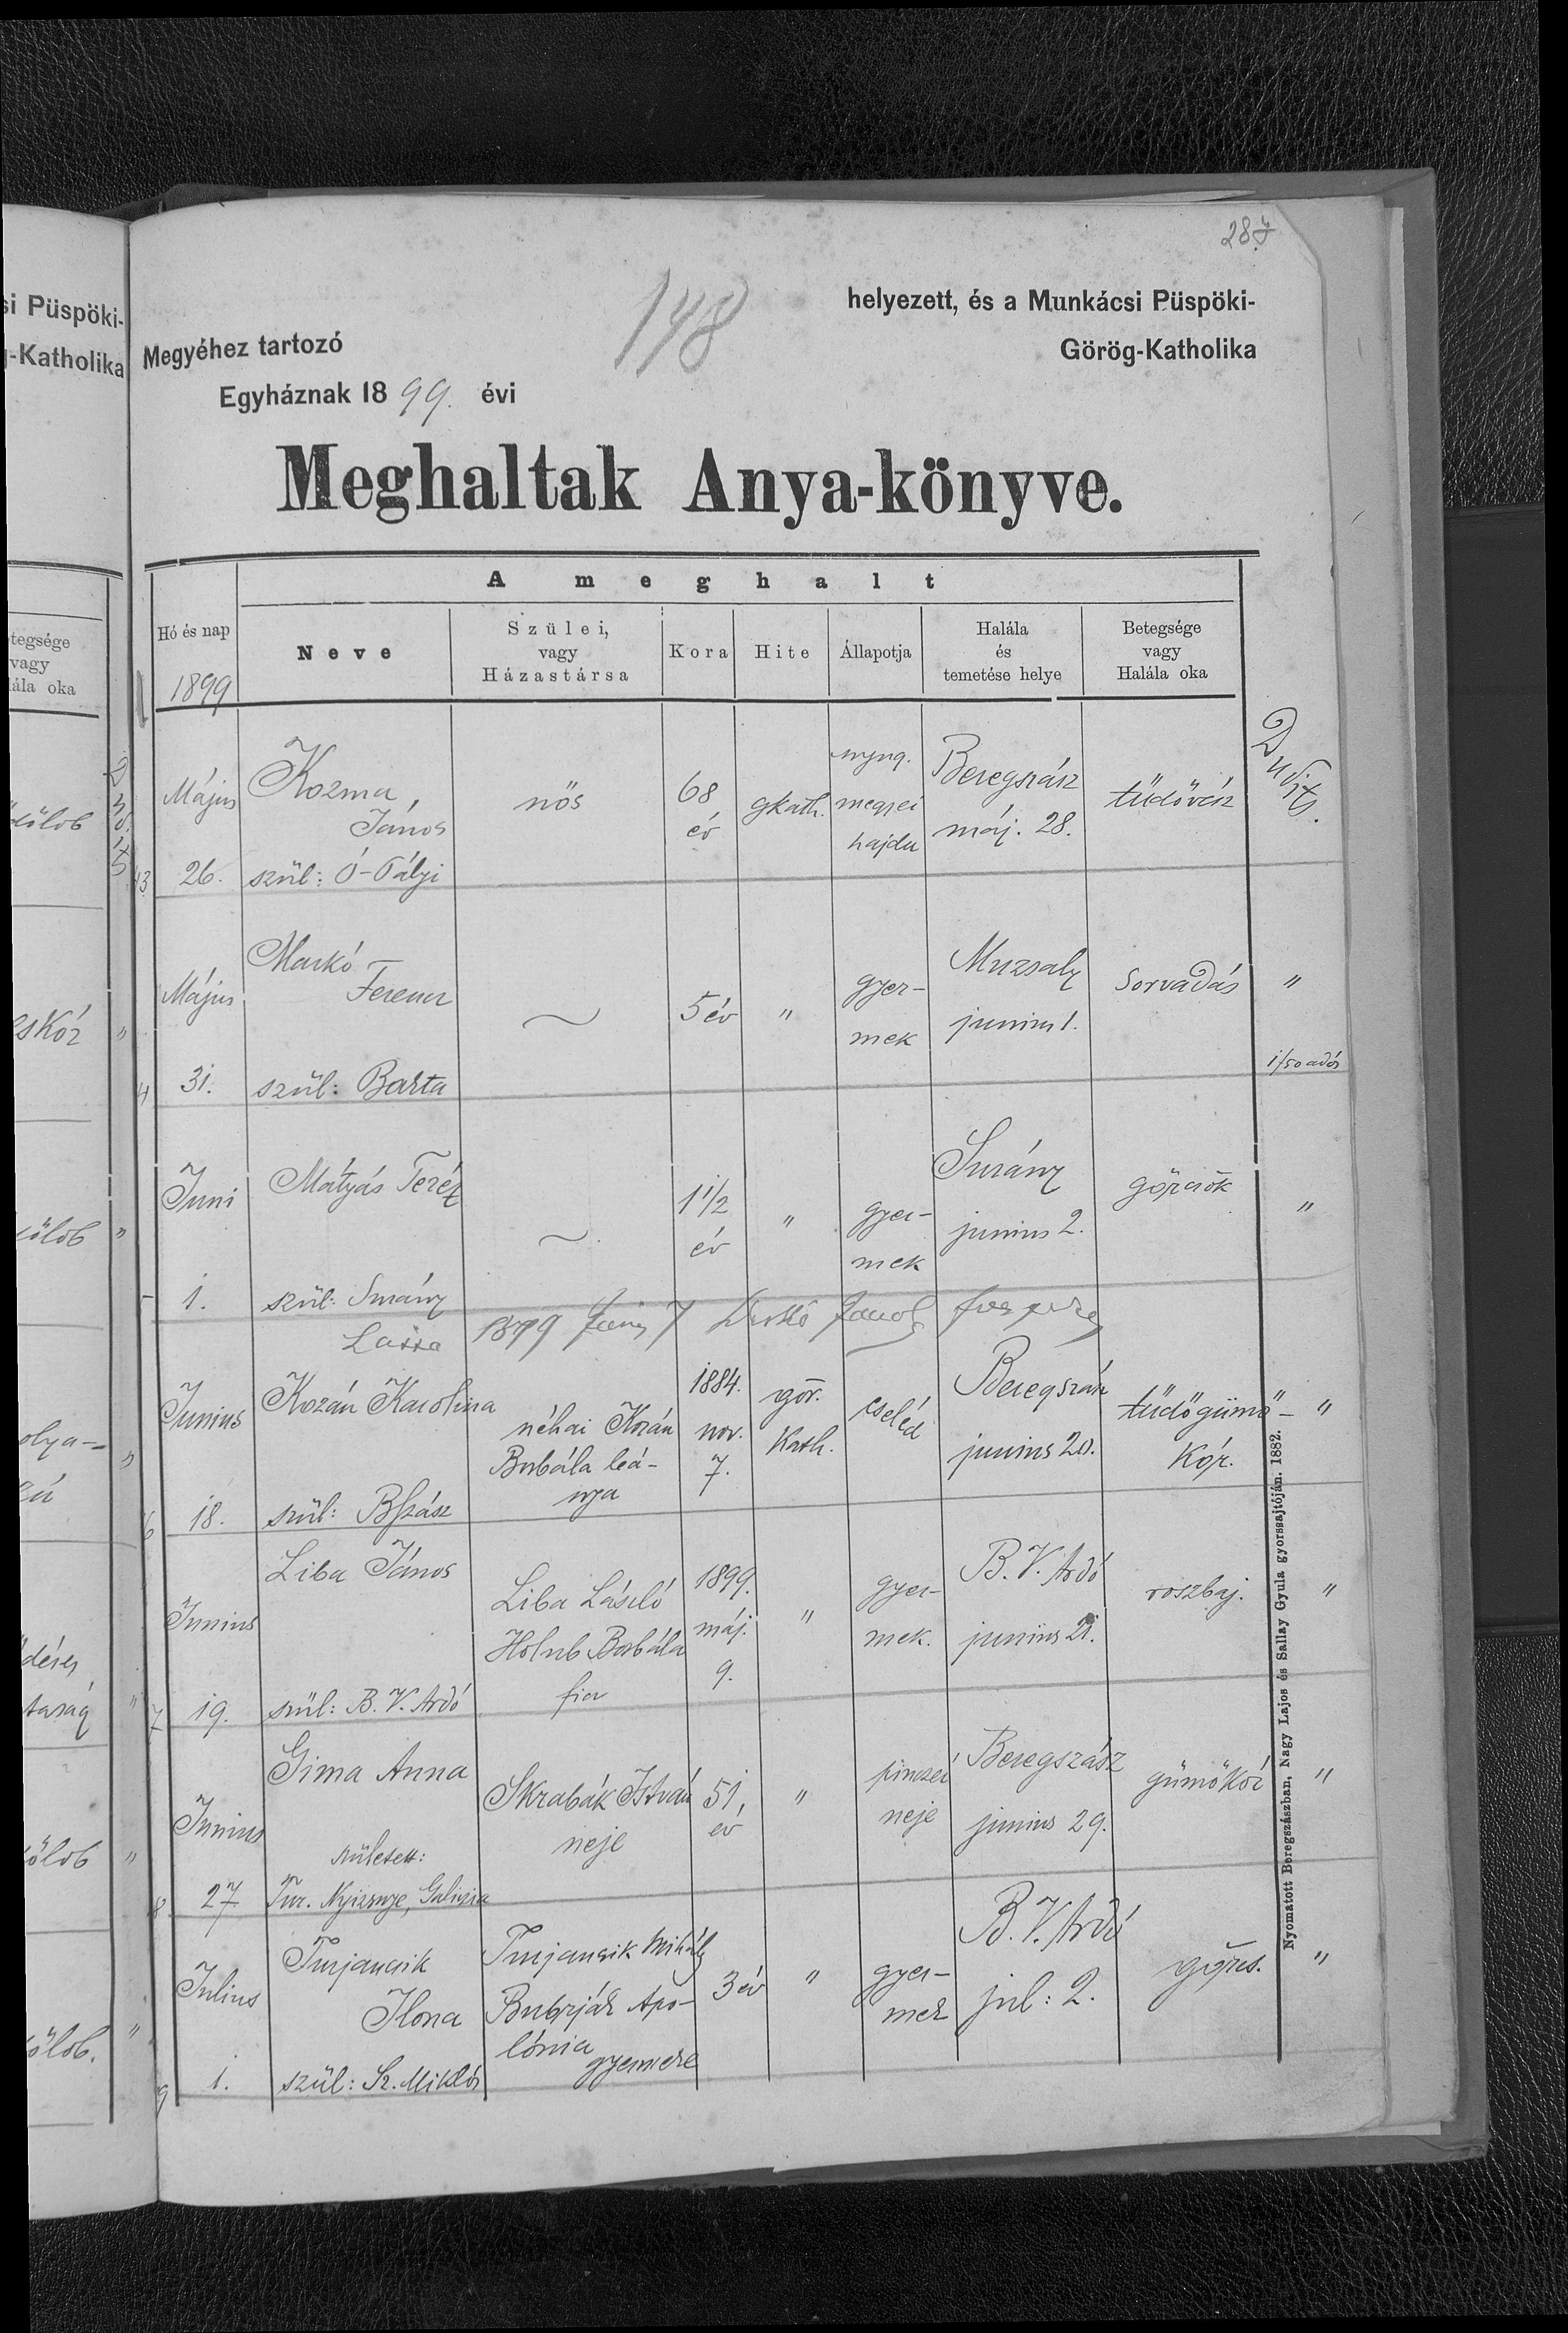 287
148
si Püspöki-
-Katholika
helyezett, és a Munkácsi Püspöki-
Megyéhez tartozó
Görög-Katholika
Egyháznak 1899. évi
Meghaltak Anya-könyve.
A meghalt
Hó és nap
1899
Neve
Szülei,
vagy
Házastársa
Kora
Hite
Állapotja
Halála
és
temetése helye
Betegsége
vagy
Halála oka
tegsége
vagy
lála oka
Május
26.
Kozma
János
szül: Ó-Pályi
nős
68
év
gkath.
nyug.
megyei
hajdu
Beregszász
máj. 28.
tüdővész
Dudits.
Május
31.
Markó
Ferencz
szül: Barta
5 év
"
gyer-
mek
Muzsaly
junius 1.
Sorvadás
"
1/50 adós
Juni
1.
Mátyás Teréz
szül: Surány
1 1/2
év
"
gyer-
mek
Surány
junius 2.
görcsök
"
Junius
18.
Kozán Karolina
szül: Bszász
néhai Kozán
Borbála leá-
nya
1884.
nov.
7.
gör.
Kath.
cseléd
Beregszász
junius 20.
tüdőgümő-
Kór.
"
Junius
19.
Liba János
szül: B. V. Ardó
Liba László
Holub Borbála
fia
1899.
máj.
9.
"
gyer-
mek.
B. V. Ardó
junius 21.
roszbaj.
"
Junius
27
Gima Anna
született:
Tur. Nyizsnye, Galiczia
Skrabák István
neje
51,
év
"
pinczér
neje
Beregszász
junius 29.
gümőkór
"
Julius
1.
Turjancsik
Ilona
szül: Sz. Miklós
Turjancsik Mihály
Bubrják Apo-
lónia
gyermeke
3 év
"
gyer-
mek
B. V. Ardó
jul: 2.
görcs.
"
Nyomatott Beregszászban, Nagy Lajos és Sallay Gyula gyorssajtóján. 1882.